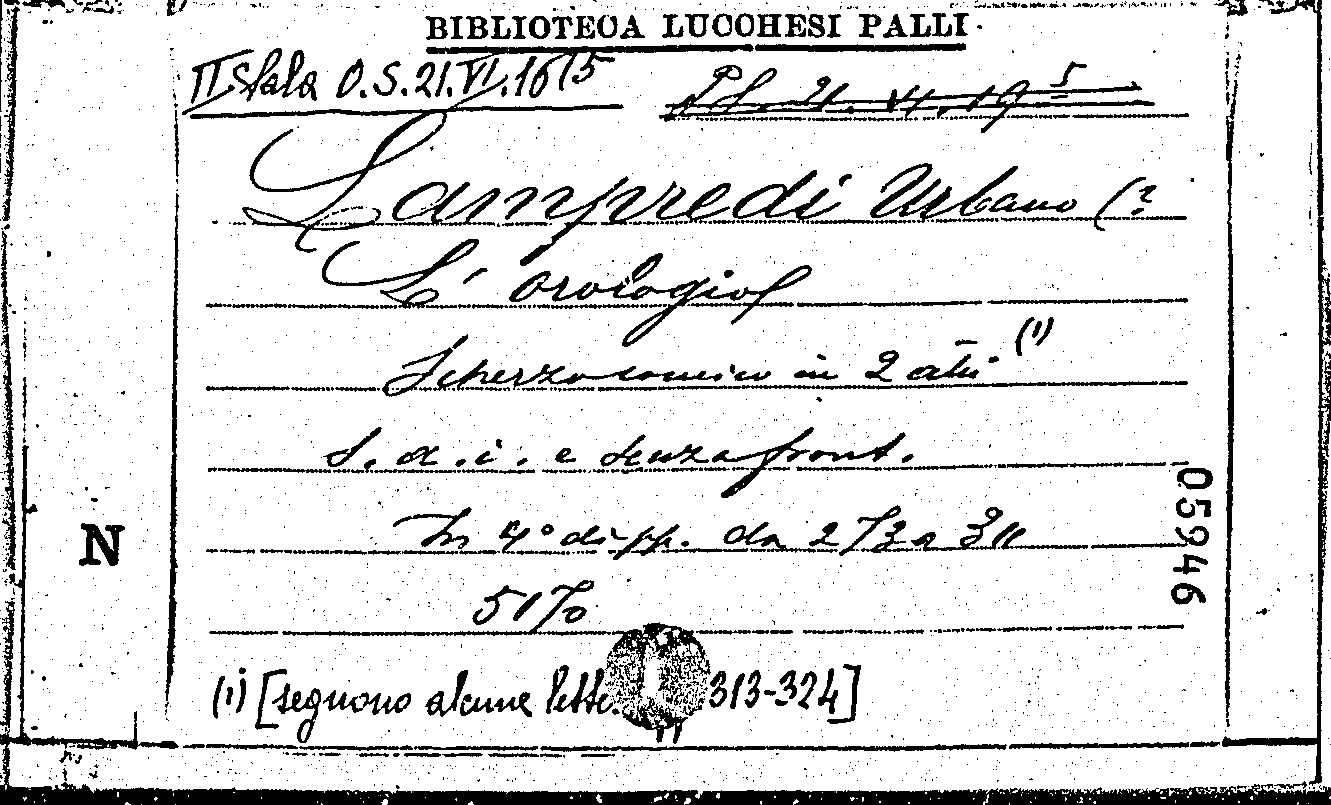 BIBLIOTECA LUCCHESI PALLI
II Sala O.S.21.VI.16(5
Pl. 21. VI. 19 5
Lampredi Urbano (?
L' orologio
Scherzo comico in 2 atti (1)
S. a. i. e senza front.
In 4° di pp. da 273 a 311
5170
(1) [seguono alcune lette. 313-324]
N
05946